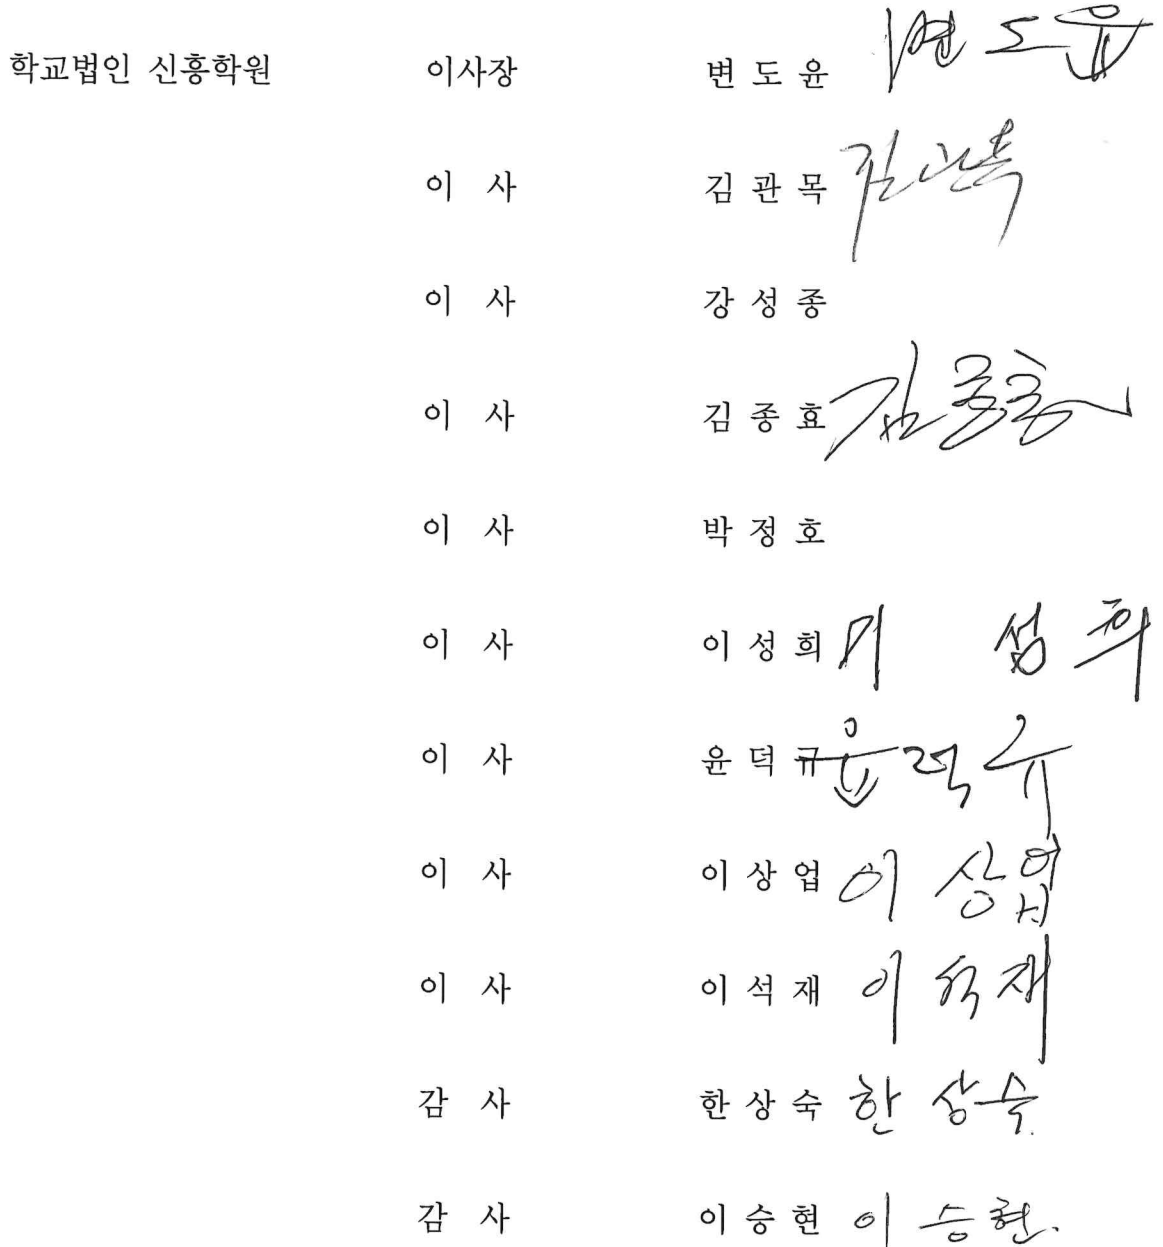 학교법인 신흥학원 이사장 변 도 윤 변 도 윤
이 사 김 관 목 김 관 목
이 사 강 성 종
이 사 김 종 효 김 종 효
이 사 박 정 호
이 사 이 성 희 이 성 희
이 사 윤 덕 규 윤 덕 규
이 사 이 상 업 이 상 업
이 사 이 석 재 이 석 재
감 사 한 상 숙 한 상 숙
감 사 이 승 현 이 승 현.